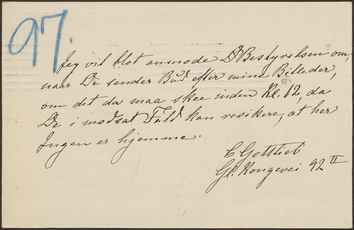 97.
Jeg vil blot anmode D Bestyrelsen om,
naar De sender Bud efter mine Billeder,
om det da maa skee inden Kl. 12, da
De i modsat Fald kan resikere, at her
Ingen er hjemme.
C Gottlieb
Gl. Kongevei 92 II